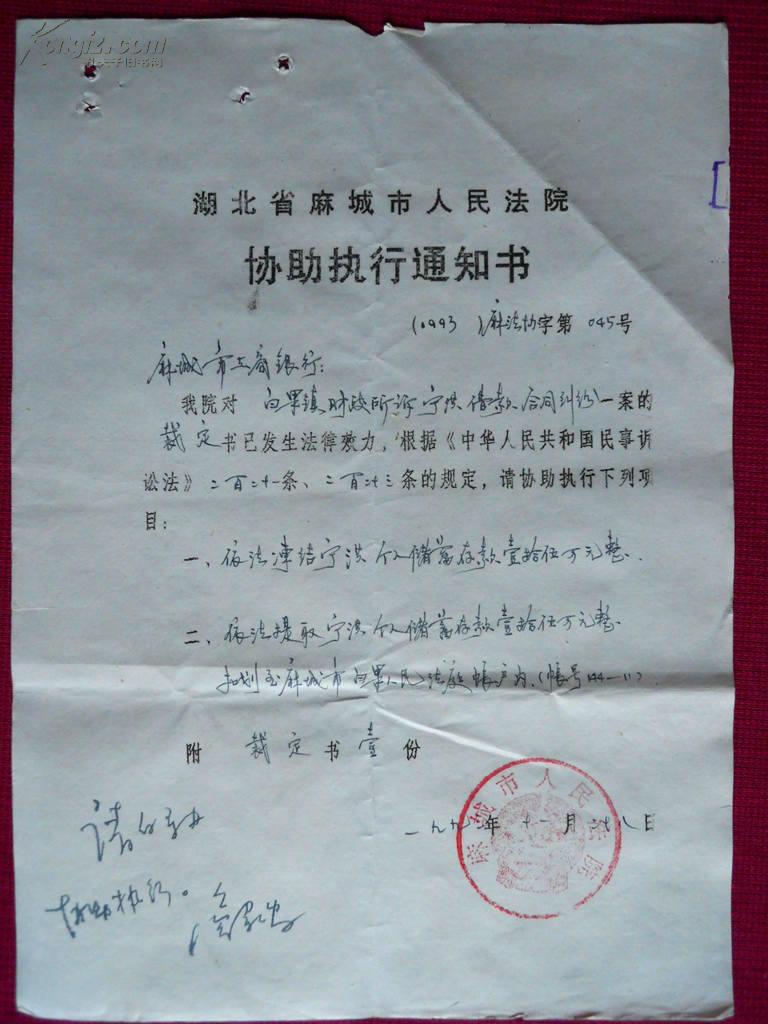 Kongfz.com
孔夫子旧书网
湖北省麻城市人民法院
协助执行通知书
(1993)麻法协字第045号
麻城市工商银行:
我院对 白果镇财政所诉宁洪借款合同纠纷一案的
裁定书已发生法律效力,根据《中华人民共和国民事诉
讼法》二百二十一条、二百二十三条的规定,请协助执行下列项
目:
一、依法冻结宁洪个人储蓄存款壹拾伍万元整.
二、依法提取宁洪个人储蓄存款壹拾伍万元整.
扣划至麻城市白果人民法庭帐户内.(帐号144-11).
附 裁定书壹份
一九九三年十一月廿八日
麻城市人民法院
请
协助执行。